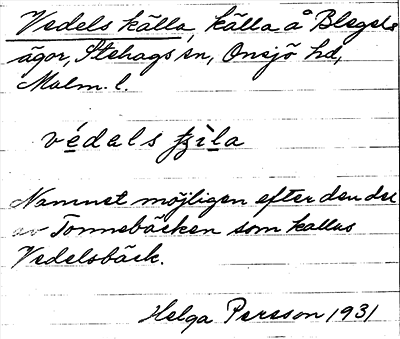 Vedels källa, källa å Blegels
ägor, Stehags sn, Onsjö hd,
Malm. l.
védals
Namnet möjligen efter den del
av Tonnebäcken som kallas
Vedelsbäck.
Helga Persson 1931